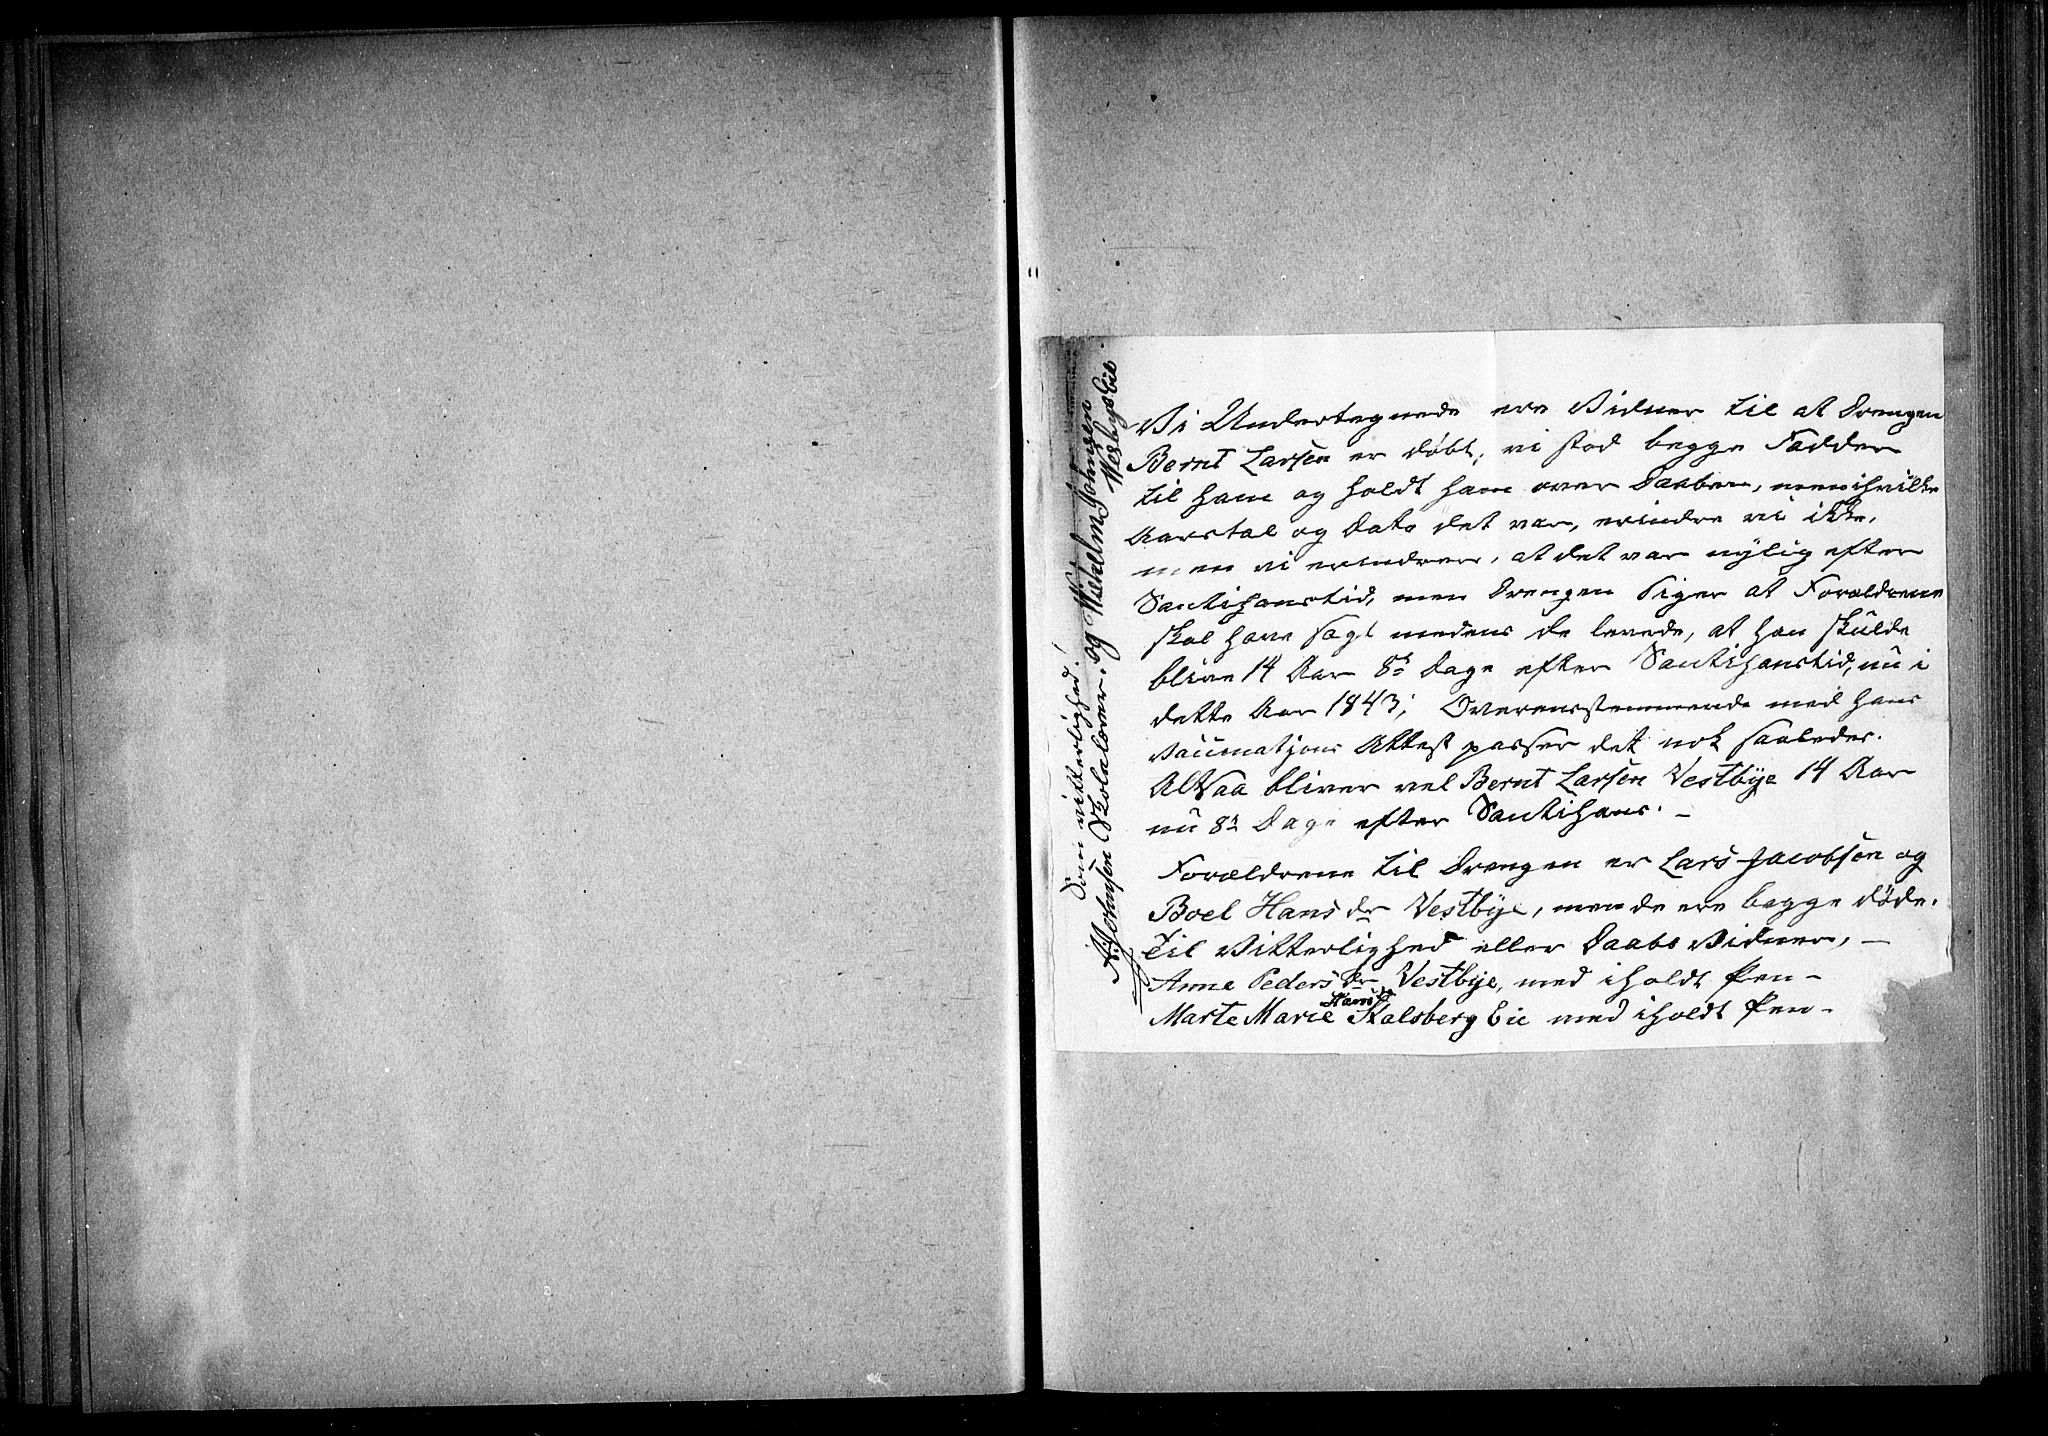 Vi Undertegnede ere Vidner til at Drengen
Bernt Larsen er døbt, vi stod begge Fadder
til ham og holdt ham over Daaben, men ihvilke
Aarstal og Dato det var, erindre vi ikke,
men vi erindrer, at det var nylig efter
Santihanstid, men Drengen siger at Forældrene
skal have sagt medens de levede, at han skulde
blive 14 Aar 8te Dage efter Santihanstid, nu i
dette Aar 1843; Overensstemmende med hans
Vaccinations Attest passer det nok saaledes.
Altsaa bliver vel Bernt Larsen Vestbÿe 14 Aar
nu 8te Dage efter Santihans. —
Forældrene til Drengen er Lars Jacobsen og
Boel Hans dr Vestbÿe, men de ere begge døde.
Til Vitterlighed eller Daabs Vidner, —
Anne Peders dr Vestbÿe, med iholdt Pen —
Marte Marie Hans dr Kalsberg Eie med iholdt Pen —
Som vitterlighed!
A. Johnsen Skolelærer. og Wilhelm Johnsen
Wesbyeeie